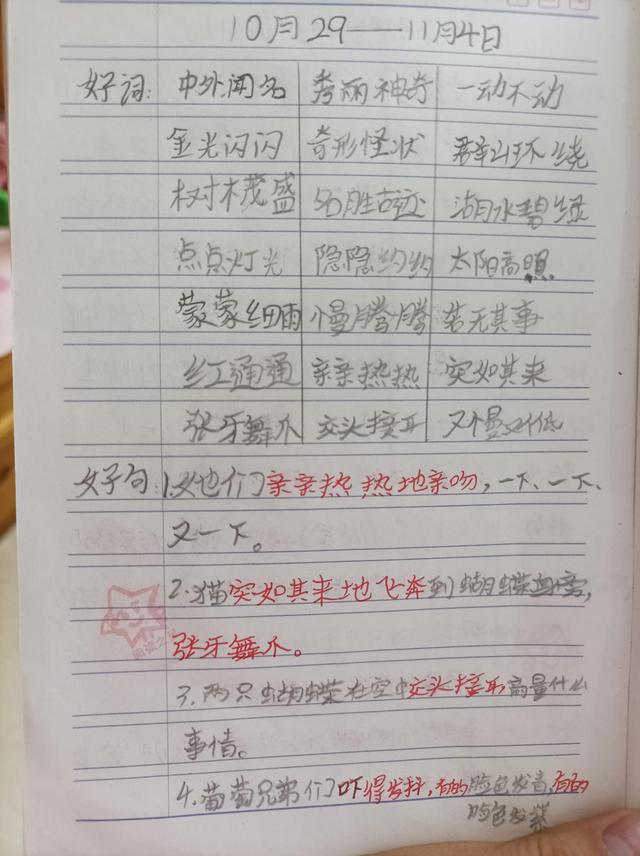 10月29——11月4日
好词: 中外闻名 秀丽神奇 一动不动
金光闪闪 奇形怪状 群山环绕
树木茂盛 名胜古迹 湖水碧绿
点点灯光 隐隐约约 太阳高照
蒙蒙细雨 慢腾腾 若无其事
红通通 亲亲热热 突如其来
张牙舞爪 交头接耳 又慢又低
好子句: 1.她们亲亲热热地亲吻,一下、一下、
又一下。
2.猫突如其来地飞奔到蝴蝶身旁,
张牙舞爪。
3.两只蝴蝶在空中交头接耳商量什么
事情。
4.葡萄兄弟们吓得发抖,有的脸色发青,有的
脸色发紫